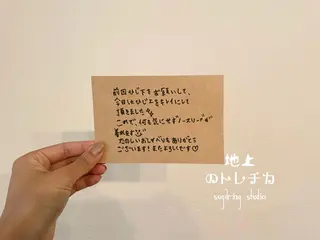 前回ひじ下をお願いして、
今日はひじ上をキレイにして
頂きました
これで、何も気にせずノースリーブが
着れます
たのしいおしゃべりもありがとう
ございます!またよろしくです
地上
のトレチカ
sugaring studio